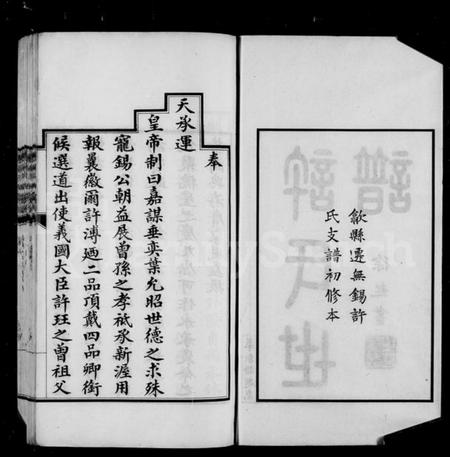 歙縣遷無錫許
氏支譜初修本
奉
天承運
皇帝制曰嘉謀垂奕葉允昭世德之求殊
寵錫公朝益展曾孫之孝祗承新渥用
報曩徽爾許溥廼二品頂戴四品卿銜
候選道出使義國大臣許珏之曾祖父